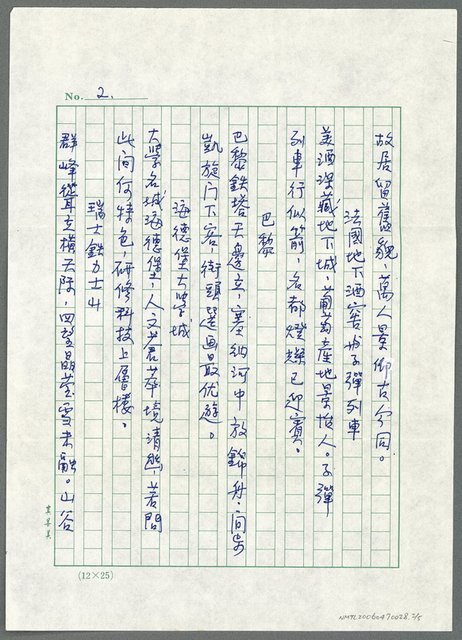 No. 2.
故居留舊貌，萬人景仰古今同。
法國地下酒窖 子彈列車
美酒深藏地下城，葡萄產地景怡人。子彈
列車行似箭，名都燈燦已迎賓。
巴黎
巴黎鉄塔天邊立，塞納河中放錦舟，
凱旋门下客，街頭選畫最优遊。
海德堡大學城
大學名城海德堡，人文薈萃境清幽，若問
此间何特色，研修科技上層樓。
瑞士鉄力士山
群峰聳立橫天際，四望晶瑩雪未融。山谷
(12×25)
NMTL20060470028 2/5